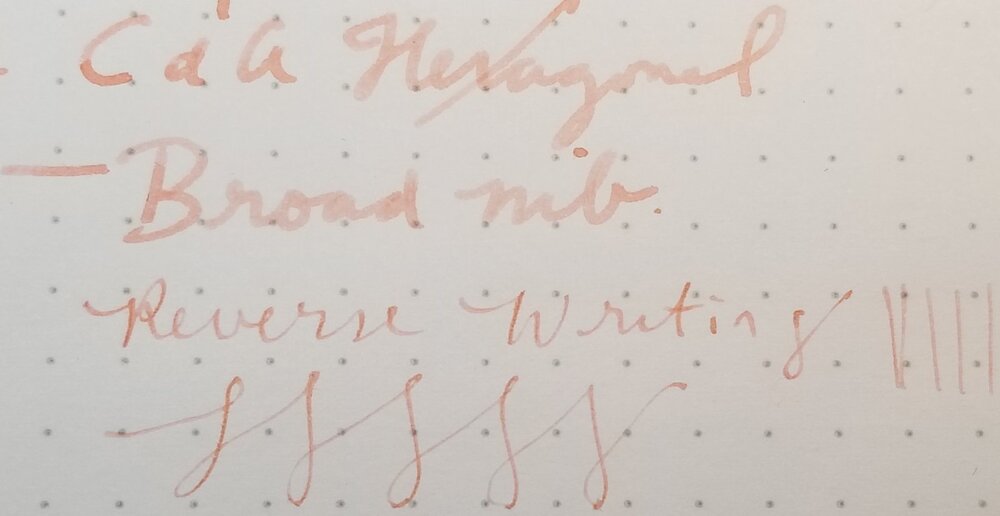 CdA Hexagonal
Broad nib.
Reverse Writing